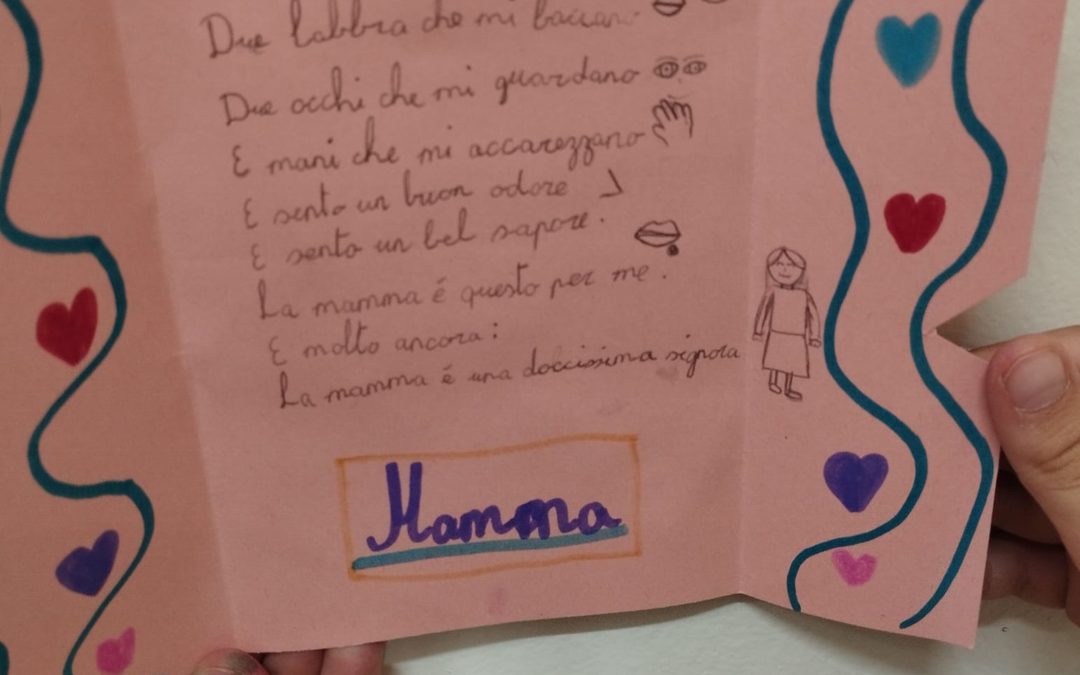 Due labbra che mi baciano
Due occhi che mi guardano
E mani che mi accarezzano
E sento un buon odore
E sento un bel sapore.
La mamma é questo per me.
E molto ancora:
La mamma é una doccissima signora
Mamma